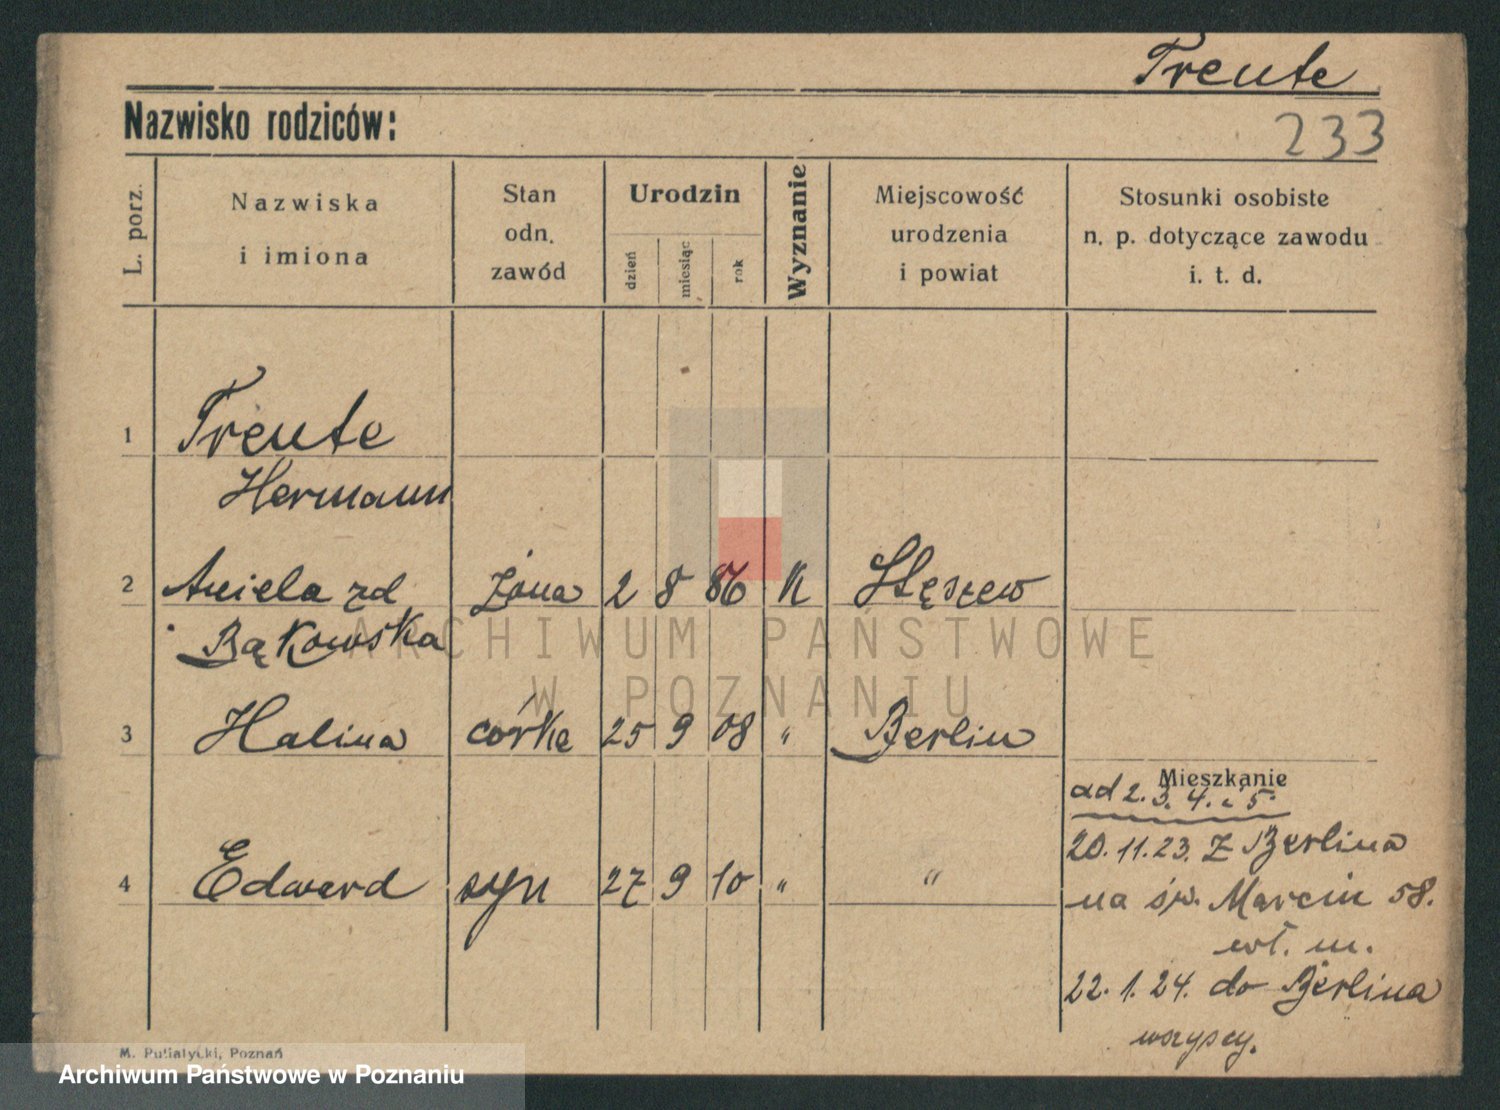 Trente
Nazwisko rodziców:
233
L. porz.
Nazwiska
i imiona
Stan
odn.
zawód
Urodzin
dzień
miesiąc
rok
Wyznanie
Miejscowość
urodzenia
i powiat
Stosunki osobiste
n. p. dotyczące zawodu
i. t. d.
1 Trente
Hermann
2 Aniela zd żona 2 8 86 K Stęszew
Bąkowska
3 Halina córka 25 9 08 " Berlin
Mieszkanie
ad 2. 3. 4. i 5.
20. 11. 23. z Berlina
4 Edward syn 27 9 10 " "
na św. Marcin 58.
wł. m.
22. 1. 24. do Berlina
wszyscy.
M. Putiatycki, Poznań
ARCHIWUM PAŃSTWOWE
W POZNANIU
Archiwum Państwowe w Poznaniu